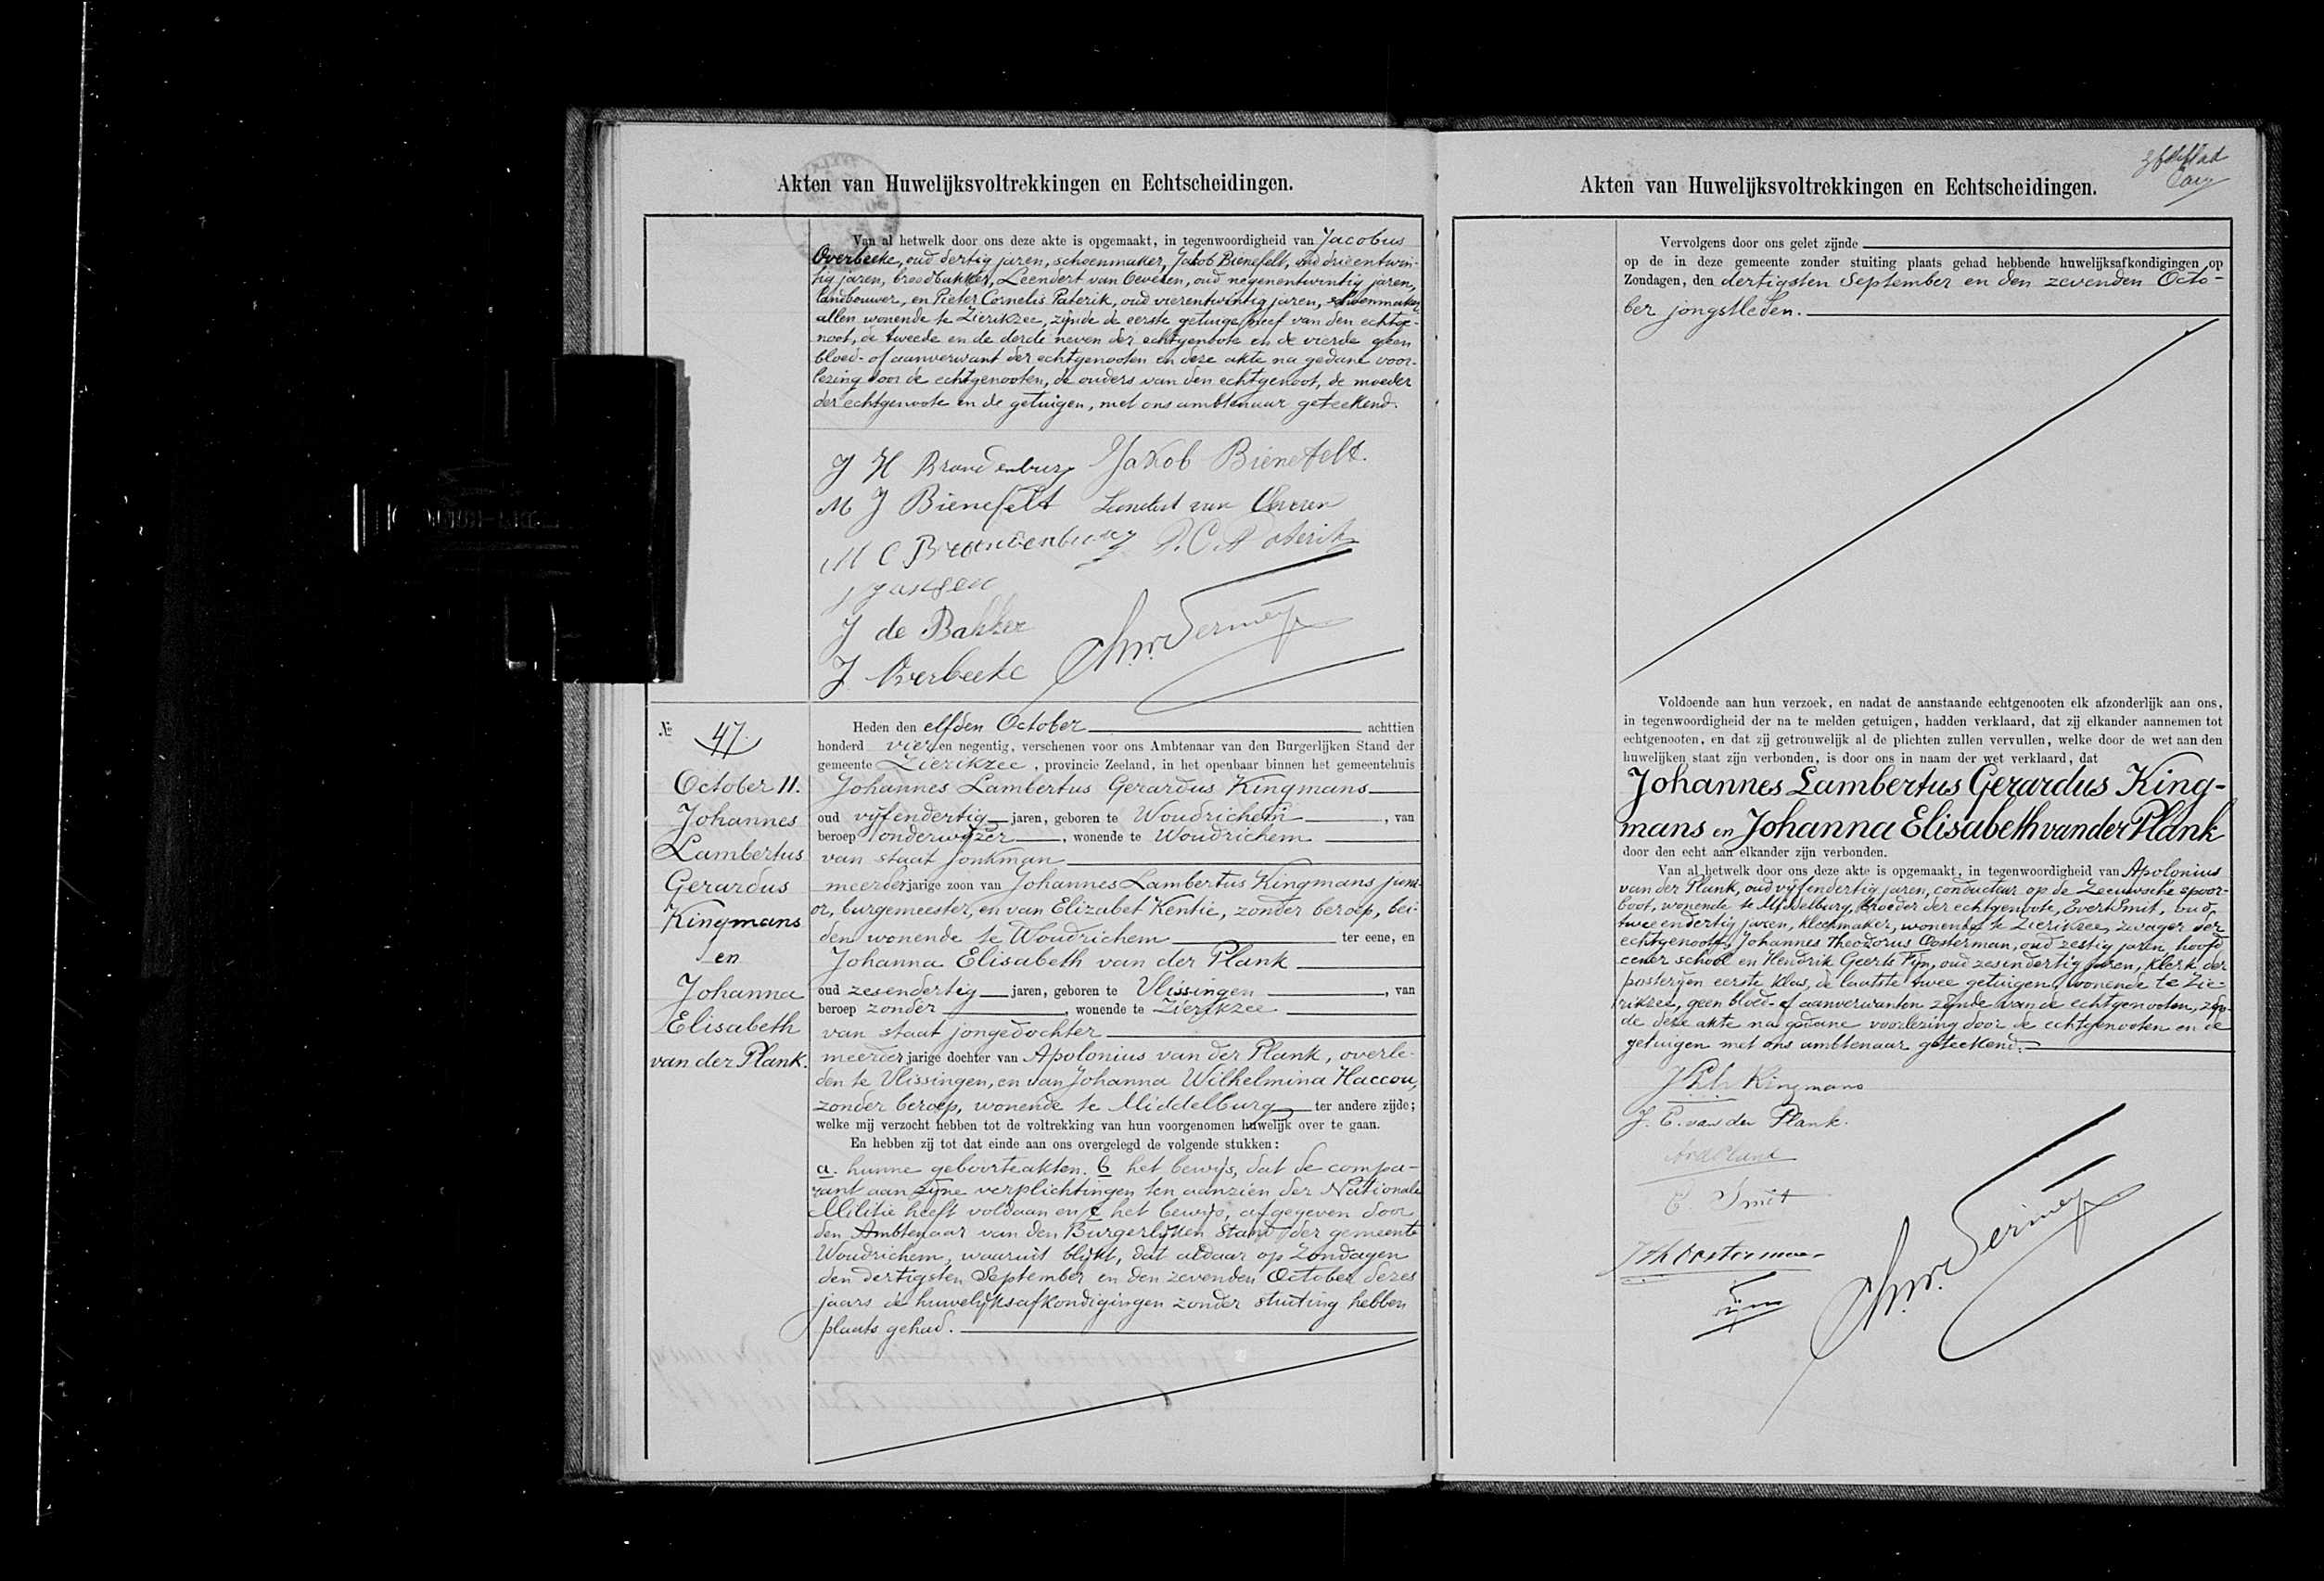 Akten van Huwelijksvoltrekkingen en Echtscheidingen.
Van al hetwelk door ons deze akte is opgemaakt, in tegenwoordigheid van Jacobus
Overbeeke, oud dertig jaren, schoenmaker, Jakob Bienefelt, oud drieentwin-
tig jaren, broodbakker, Leendert van Oeveren, oud negenentwintig jaren,
landbouwer, en Pieter Cornelis Paterik, oud vierentwintig jaren, schoenmaker,
allen wonende te Zierikzee, zijnde de eerste getuige neef van den echtge-
noot, de tweede en de derde neven der echtgenoote en de vierde geen
bloed- of aanverwant der echtgenooten en deze akte na gedane voor-
lezing door de echtgenooten, de ouders van den echtgenoot, de moeder
der echtgenoote en de getuigen, met ons ambtenaar geteekend.
J H Brandenburg Jakob Bienefelt.
M J Bienefelt Leendert van Oeveren
M C Brandenburg P. C. Paterik
J de Bakker
J Overbeeke
№ 47.
October 11.
Johannes
Lambertus
Gerardus
Kingmans
en
Johanna
Elisabeth
van der Plank.
Heden den elfden October achttien
honderd vier en negentig, verschenen voor ons Ambtenaar van den Burgerlijken Stand der
gemeente Zierikzee, provincie Zeeland, in het openbaar binnen het gemeentehuis
Johannes Lambertus Gerardus Kingmans
oud vijfendertig jaren, geboren te Woudrichem, van
beroep onderwijzer, wonende te Woudrichem
van staat jonkman
meerderjarige zoon van Johannes Lambertus Kingmans juni-
or, burgemeester, en van Elizabet Kentie, zonder beroep, bei-
den wonende te Woudrichem ter eene, en
Johanna Elisabeth van der Plank
oud zesendertig jaren, geboren te Vlissingen, van
beroep zonder, wonende te Zierikzee
van staat jongedochter
meerderjarige dochter van Apolonius van der Plank, overle-
den te Vlissingen, en van Johanna Wilhelmina Haccou,
zonder beroep, wonende te Middelburg ter andere zijde;
welke mij verzocht hebben tot de voltrekking van hun voorgenomen huwelijk over te gaan.
En hebben zij tot dat einde aan ons overgelegd de volgende stukken:
a. hunne geboorteakten. b het bewijs, dat de compa-
rant aan zijne verplichtingen ten aanzien der Nationale
Militie heeft voldaan en c het bewijs, afgegeven door
den Ambtenaar van den Burgerlijken Stand der gemeente
Woudrichem, waaruit blijkt, dat aldaar op Zondagen
den dertigsten September en den zevenden October dezes
jaars de huwelijksafkondigingen zonder stuiting hebben
plaats gehad.
Akten van Huwelijksvoltrekkingen en Echtscheidingen.
Vervolgens door ons gelet zijnde
op de in deze gemeente zonder stuiting plaats gehad hebbende huwelijksafkondigingen op
Zondagen, den dertigsten September en den zevenden Octo-
ber jongstleden.
Voldoende aan hun verzoek, en nadat de aanstaande echtgenooten elk afzonderlijk aan ons,
in tegenwoordigheid der na te melden getuigen, hadden verklaard, dat zij elkander aannemen tot
echtgenooten, en dat zij getrouwelijk al de plichten zullen vervullen, welke door de wet aan den
huwelijken staat zijn verbonden, is door ons in naam der wet verklaard, dat
Johannes Lambertus Gerardus King-
mans en Johanna Elisabeth van der Plank
door den echt aan elkander zijn verbonden.
Van al hetwelk door ons deze akte is opgemaakt, in tegenwoordigheid van Apolonius
van der Plank, oud vijfendertig jaren, conducteur op de Zeeuwsche spoor-
boot, wonende te Middelburg, broeder der echtgenoote, Evert Smit, oud
twee endertig jaren, kleermaker, wonende te Zierikzee, zwager der
echtgenoote, Johannes Theodorus Oosterman, oud zestig jaren, hoofd
eener school en Hendrik Geerts Fijn, oud zesendertig jaren, klerk der
posterijen eerste klas, de laatste twee getuigen, wonende te Zie-
rikzee, geen bloed- of aanverwanten zijnde van de echtgenooten, zijn-
de deze akte na gedane voorlezing door de echtgenooten en de
getuigen met ons ambtenaar geteekend.
Kingmans
J. E. van der Plank.
E. Smit
J Th Oosterman
Fijn